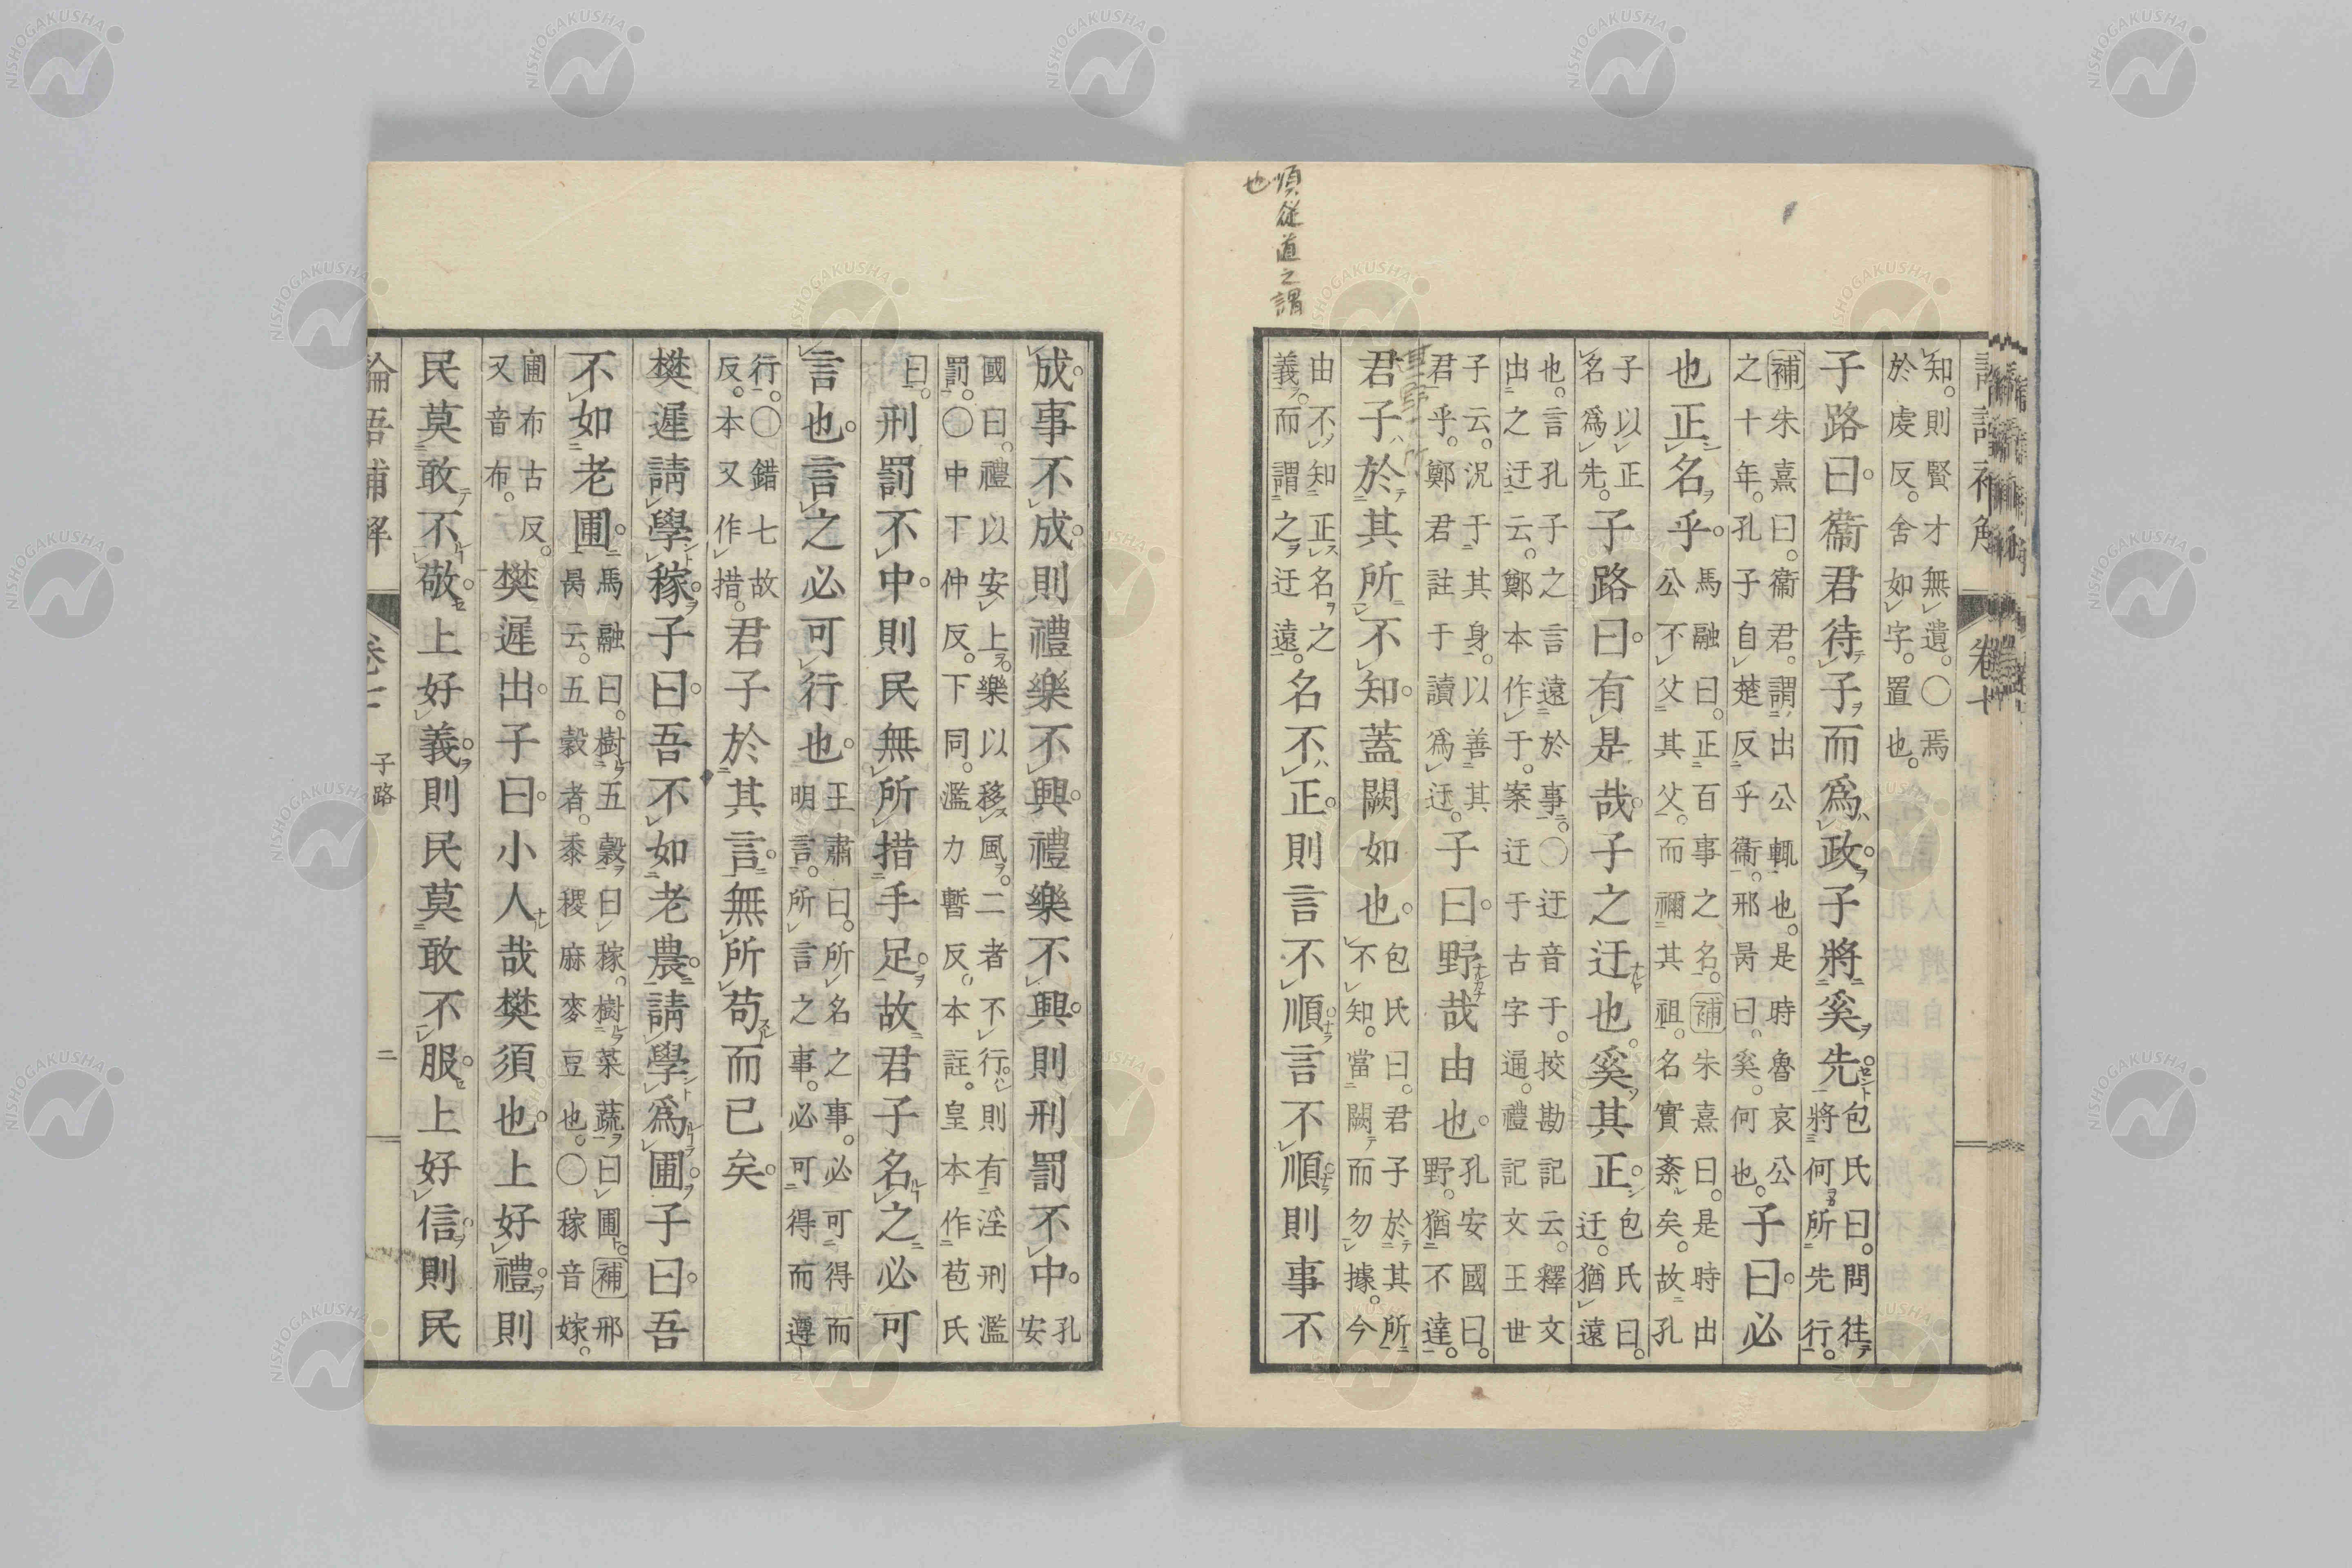 順從道之謂
也
知。則賢才無遺。〇焉
於虔反。舍如字。置也。
子路曰。衞君待子而爲政。子將奚先。包氏曰。問往將何所先行。
補朱熹曰。衞君。謂出公輒也。是時魯哀公之十年。孔子自楚反乎衞。邢昺曰。奚。何也。子曰。必
也正名乎。馬融曰。正百事之名。補朱熹曰。是時出公不父其父。而禰其祖。名實紊矣。故孔
子以正名爲先。子路曰。有是哉。子之迂也。奚其正。包氏曰。迂。猶遠
也。言孔子之言遠於事。〇迂音于。挍勘記云。釋文
出之迂云。鄭本作于。案迂于古字通。禮記文王世
子云。況于其身。以善其君乎。鄭君註于讀爲迂。子曰。野哉由也。孔安國曰。野。猶不達。
君子於其所不知。蓋闕如也。包氏曰。君子於其所不知。當闕而勿據。今
由不知正名之義。而謂之迂遠。名不正。則言不順。言不順。則事不
成。事不成。則禮樂不興。禮樂不興。則刑罰不中。孔安
國曰。禮以安上。樂以移風。二者不行。則有淫刑濫
罰。〇中丁仲反。下同。濫力暫反。本註。皇本作苞氏
曰。刑罰不中。則民無所措手足。故君子名之必可
言也。言之必可行也。王肅曰。所名之事。必可得而明言。所言之事。必可得而遵
行。〇錯七故反。本又作措。君子於其言。無所苟而已矣。
樊遲請學稼。子曰。吾不如老農。請學爲圃。子曰。吾
不如老圃。馬融曰。樹五穀曰稼。樹菜蔬曰圃。補邢昺云。五穀者。黍稷麻麥豆也。〇稼音嫁。
圃布古反。又音布。樊遲出。子曰。小人哉樊須也。上好禮。則
民莫敢不敬。上好義。則民莫敢不服。上好信。則民
論語補解
子路
二
NISHOGAKUSHA